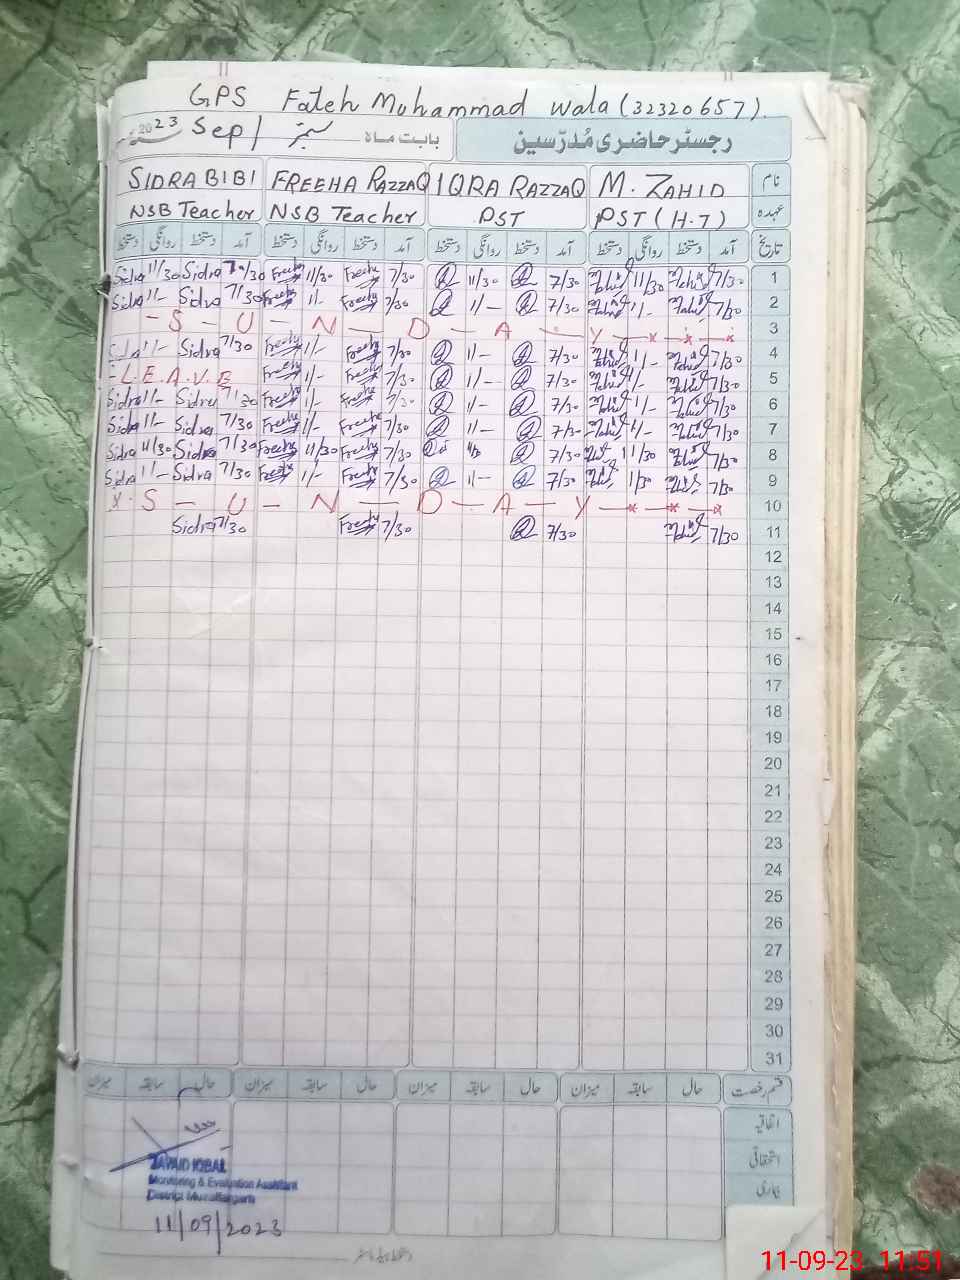 GPS Fateh Muhammad Wala (32320657)
رجسٹر حاضری مُدرّسین بابت ماہ ستمبر Sep/ 2023
نام M. ZAHID IQRA RAZZAQ FREEHA RAZZAQ SIDRA BIBI
عہدہ PST (H.T) PST NSB Teacher NSB Teacher
تاریخ آمد دستخط روانگی دستخط آمد دستخط روانگی دستخط آمد دستخط روانگی دستخط آمد دستخط روانگی دستخط
Sidra 11/30 Sidra 7/30 Freeha 11/30 Freeha 7/30 11/30 7/30 Zahid 11/30 Zahid 7/30 1
Sidra 11/- Sidra 7/30 Freeha 11/- Freeha 7/30 11/- 7/30 Zahid 11/- Zahid 7/30 2
- S - U - N - D - A - Y - x - x - x 3
Sidra 11/- Sidra 7/30 Freeha 11/- Freeha 7/30 11/- 7/30 Zahid 11/- Zahid 7/30 4
- L.E.A.V.E Freeha 11/- Freeha 7/30 11/- 7/30 Zahid 11/- Zahid 7/30 5
Sidra 11/- Sidra 7/30 Freeha 11/- Freeha 7/30 11/- 7/30 Zahid 11/- Zahid 7/30 6
Sidra 11/- Sidra 7/30 Freeha 11/- Freeha 7/30 11/- 7/30 Zahid 11/- Zahid 7/30 7
Sidra 11/30 Sidra 7/30 Freeha 11/30 Freeha 7/30 7/30 Zahid 11/30 Zahid 7/30 8
Sidra 11/- Sidra 7/30 Freeha 11/- Freeha 7/30 11/- 7/30 Zahid 11/30 Zahid 7/30 9
x S - U - N - D - A - Y - x - x - x 10
Sidra 7/30 Freeha 7/30 7/30 Zahid 7/30 11
12
13
14
15
16
17
18
19
20
21
22
23
24
25
26
27
28
29
30
31
قسم رخصت حال سابقہ میزان حال سابقہ میزان حال سابقہ میزان حال سابقہ میزان
اتفاقیہ
استحقاقی
بیماری
JAVAID IQBAL
Monitoring & Evaluation Assistant
District Muzaffargarh
11/09/2023
11-09-23 11:51